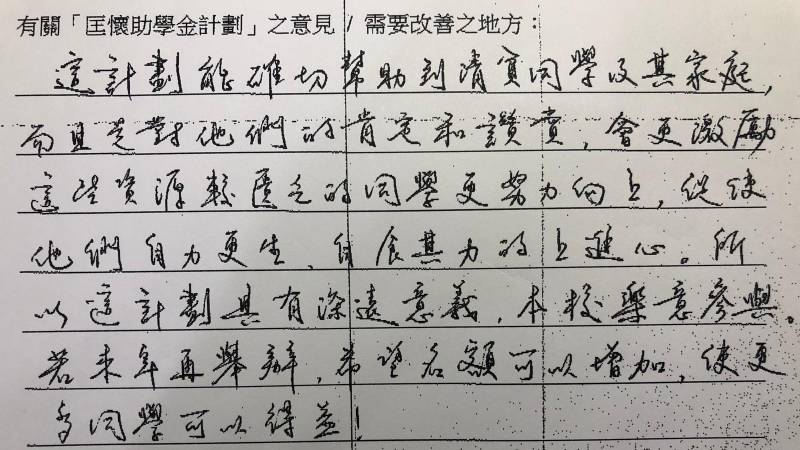 有關「匡懷助學金計劃」之意見 / 需要改善之地方：
這計劃能確切幫助到清貧同學及其家庭，
而且是對他們的肯定和讚賞，會更激勵
這些資源較匱乏的同學更努力向上，促使
他們自力更生、自食其力的上進心。所
以這計劃具有深遠意義，本校樂意參與。
若來年再舉辦，希望名額可以增加，使更
多同學可以得益！